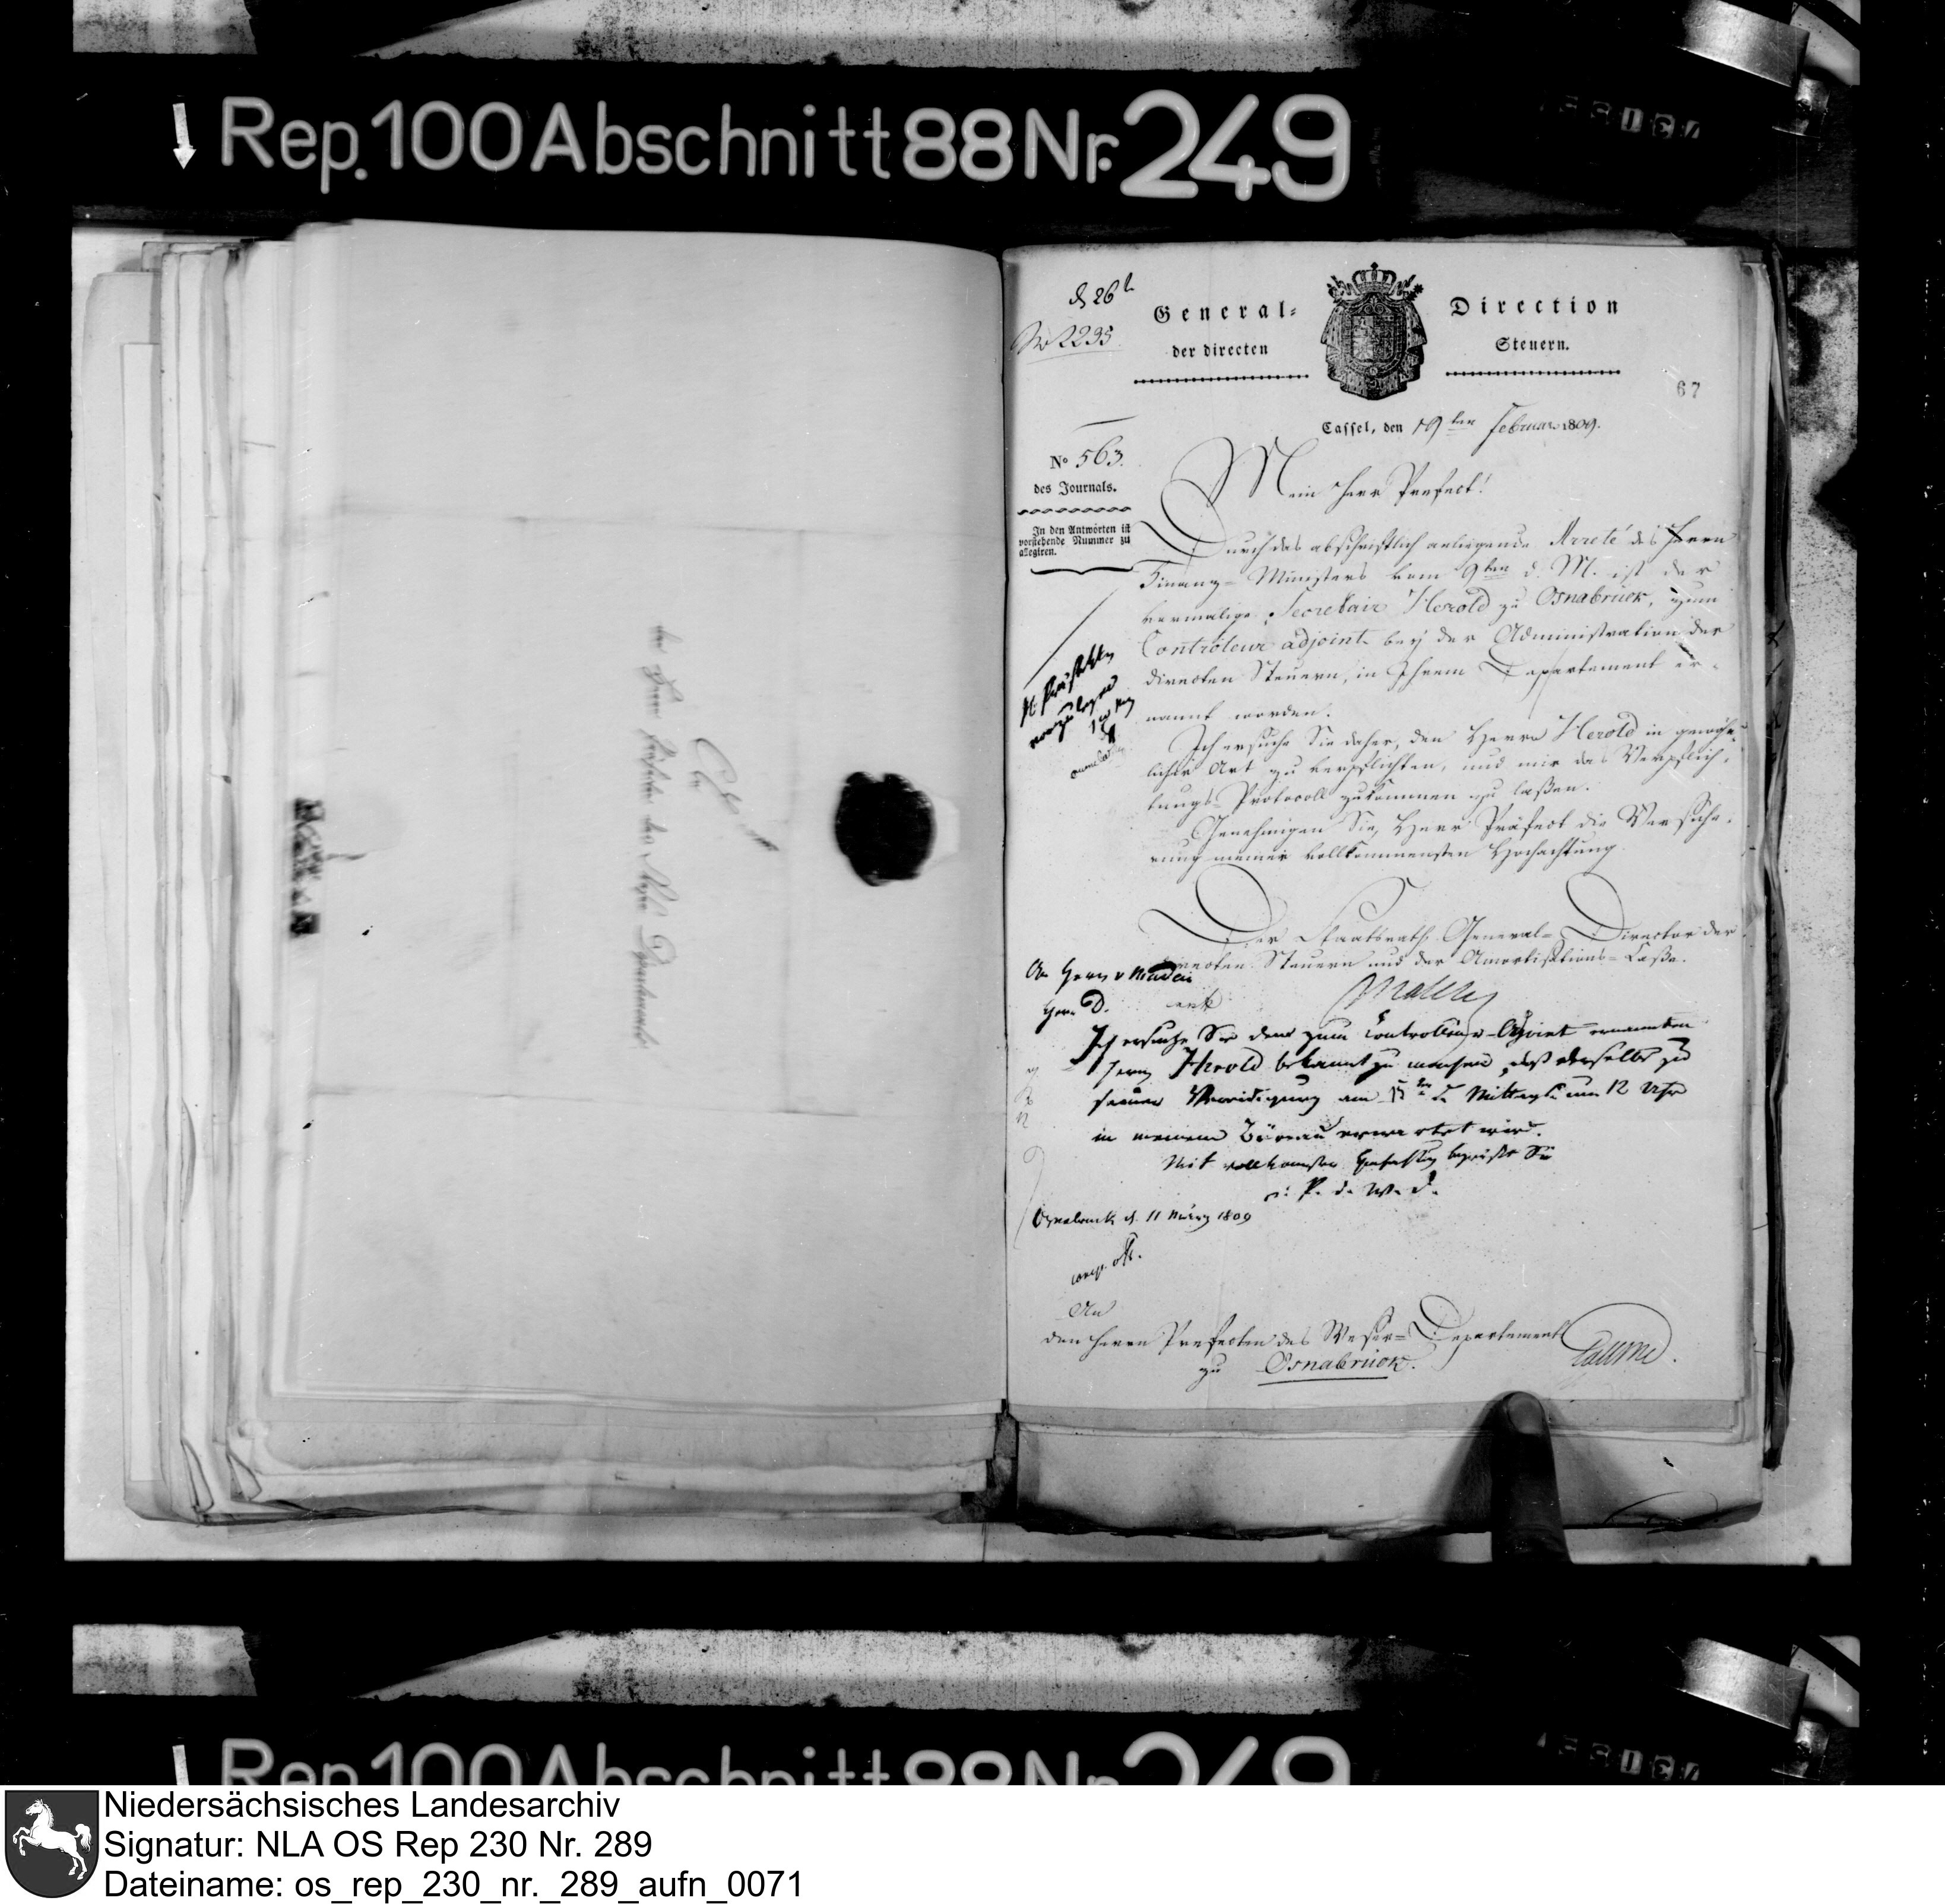 Rep. 100 Abschnitt 88 Nr. 249
d 26t
No 2295
General- Direction
der directen Steuern.
67
Cassel, den 19ten Februar 1809.
No 563.
des Journals.
In den Antworten ist
vorstehende Nummer zu
allegiren.
Mein Herr Prefect!
Durch das abschriftlich anliegende Arreté des Herrn
Finanz-Ministers vom 9ten d. M. ist der
vormalige Secretair Herold zu Osnabrück, zum
Controleur adjoint bey der Administration der
directen Steuern, in Ihrem Departement er-
nannt worden.
Ich ersuche Sie daher, den Herrn Herold in gewöhn-
licher Art zu verpflichten, und mir das Verpflich-
tungs-Protocoll zukommen zu laßen.
Genehmigen Sie, Herr Präfect die Versiche-
rung meiner vollkommensten Hochachtung
Der Staatsrath, General-Director der
directen Steuern und der Amortisations-Casse.
Malchus
An Herrn v
Herr D.
Ich ersuche Sie dem zum Controlleur-Adjoint ernannten
Herrn Herold bekannt zu machen, daß derselbe zu
seiner Vereidigung am 15ten d. Mittags um 12 Uhr
in meinem Büreau erwartet wird.
Mit vollkommner Hochachtung begrüße Sie
d. P. d. W. D.
Osnabrück d. 11 März 1809
An
den Herrn Prefecten des Weser-Departements
zu Osnabrück.
den Herrn Präfecten des Weser Departements
Rep. 100 Abschnitt 88 Nr. 249
Niedersächsisches Landesarchiv
Signatur: NLA OS Rep 230 Nr. 289
Dateiname: os_rep_230_nr._289_aufn_0071